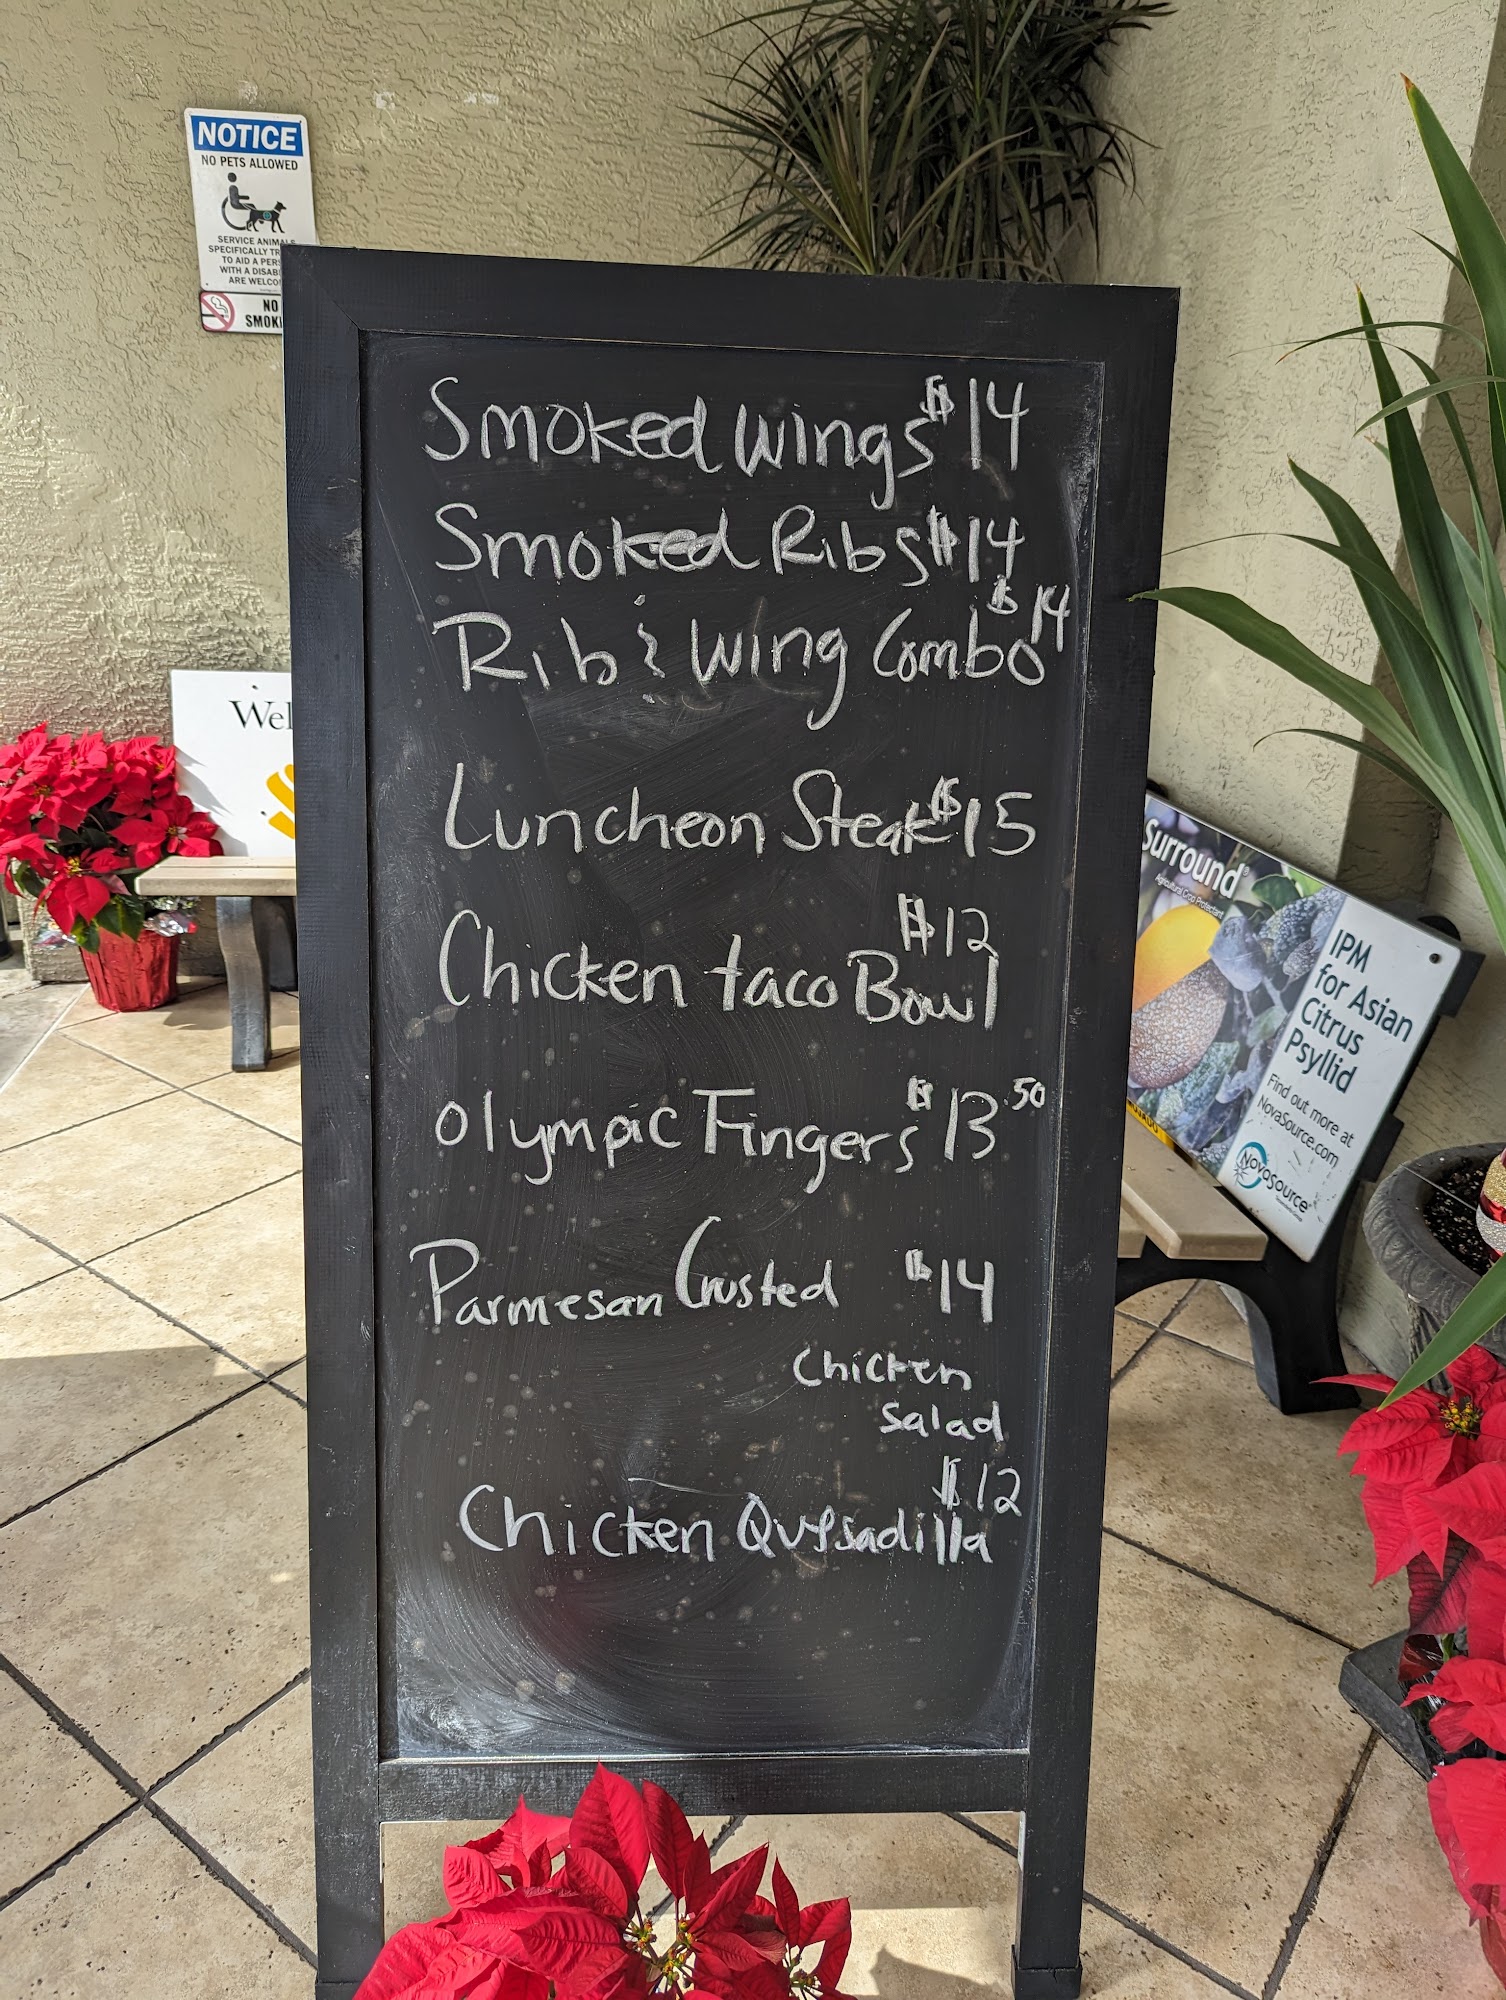 NOTICE
NO PETS ALLOWED
SERVICE ANIMALS
SPECIFICALLY TR
TO AID A PERS
WITH A DISAB
ARE WELCO
NO
SMOKI
Smoked Wings $14
Smoked Ribs $14
Rib & Wing Combo $14
Luncheon Steak $15
$12
Chicken taco Bowl
Olympic Fingers $13.50
Parmesan Crusted $14
Chicken
Salad
$12
Chicken Quesadilla
Wel
Surround®
Agricultural Crop Protectant
IPM
for Asian
Citrus
Psyllid
Find out more at
NovaSource.com
NovaSource